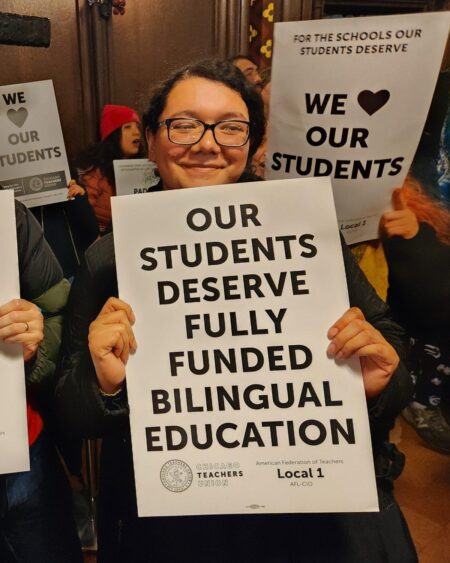 WE
OUR
STUDENTS
FOR THE SCHOOLS OUR
STUDENTS DESERVE
WE
OUR
STUDENTS
Local 1
OUR
STUDENTS
DESERVE
FULLY
FUNDED
BILINGUAL
EDUCATION
CHICAGO
TEACHERS
UNION
American Federation of Teachers
Local 1
AFL-CIO